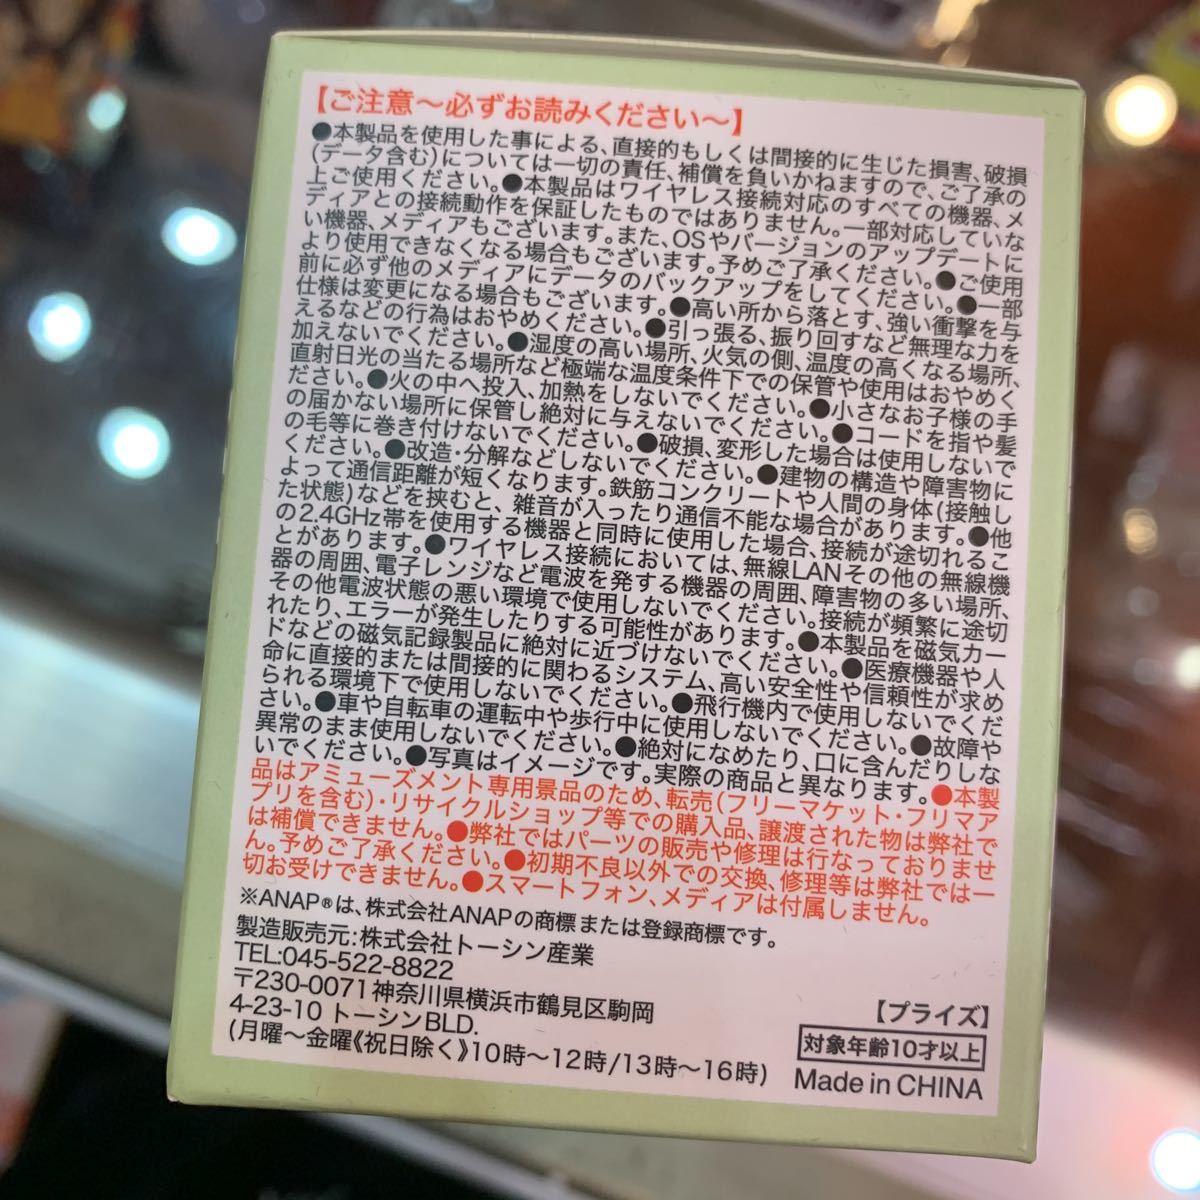 【ご注意～必ずお読みください～】
●本製品を使用した事による、直接的もしくは間接的に生じた損害、破損
(データ含む)については一切の責任、補償を負いかねますので、ご了承の
上ご使用ください。●本製品はワイヤレス接続対応のすべての機器、メ
ディアとの接続動作を保証したものではありません。一部対応していな
い機器、メディアもございます。また、OSやバージョンのアップデートに
より使用できなくなる場合もございます。予めご了承ください。●ご使用
前に必ず他のメディアにデータのバックアップをしてください。●一部
仕様は変更になる場合もございます。●高い所から落とす、強い衝撃を与
えるなどの行為はおやめください。●引っ張る、振り回すなど無理な力を
加えないでください。●湿度の高い場所、火気の側、温度の高くなる場所、
直射日光の当たる場所など極端な温度条件下での保管や使用はおやめく
ださい。●火の中へ投入、加熱をしないでください。●小さなお子様の手
の届かない場所に保管し絶対に与えないでください。●コードを指や髪
の毛等に巻き付けないでください。●破損、変形した場合は使用しないで
ください。●改造・分解などしないでください。●建物の構造や障害物に
よって通信距離が短くなります。鉄筋コンクリートや人間の身体(接触し
た状態)などを挟むと、雑音が入ったり通信不能な場合があります。●他
の2.4GHz帯を使用する機器と同時に使用した場合、接続が途切れるこ
とがあります。●ワイヤレス接続においては、無線LANその他の無線機
器の周囲、電子レンジなど電波を発する機器の周囲、障害物の多い場所、
その他電波状態の悪い環境で使用しないでください。接続が頻繁に途切
れたり、エラーが発生したりする可能性があります。●本製品を磁気カー
ドなどの磁気記録製品に絶対に近づけないでください。●医療機器や人
命に直接的または間接的に関わるシステム、高い安全性や信頼性が求め
られる環境下で使用しないでください。●飛行機内で使用しないでくだ
さい。●車や自転車の運転中や歩行中に使用しないでください。●故障や
異常のまま使用しないでください。●絶対になめたり、口に含んだりしな
いでください。●写真はイメージです。実際の商品と異なります。●本製
品はアミューズメント専用景品のため、転売(フリーマケット・フリマア
プリを含む)・リサイクルショップ等での購入品、譲渡された物は弊社で
は補償できません。●弊社ではパーツの販売や修理は行なっておりませ
ん。予めご了承ください。●初期不良以外での交換、修理等は弊社では一
切お受けできません。●スマートフォン、メディアは付属しません。
※ANAP®は、株式会社ANAPの商標または登録商標です。
製造販売元:株式会社トーシン産業
TEL:045-522-8822
〒230-0071 神奈川県横浜市鶴見区駒岡
4-23-10 トーシンBLD.
(月曜～金曜《祝日除く》10時～12時/13時～16時)
【プライズ】
対象年齢10才以上
Made in CHINA